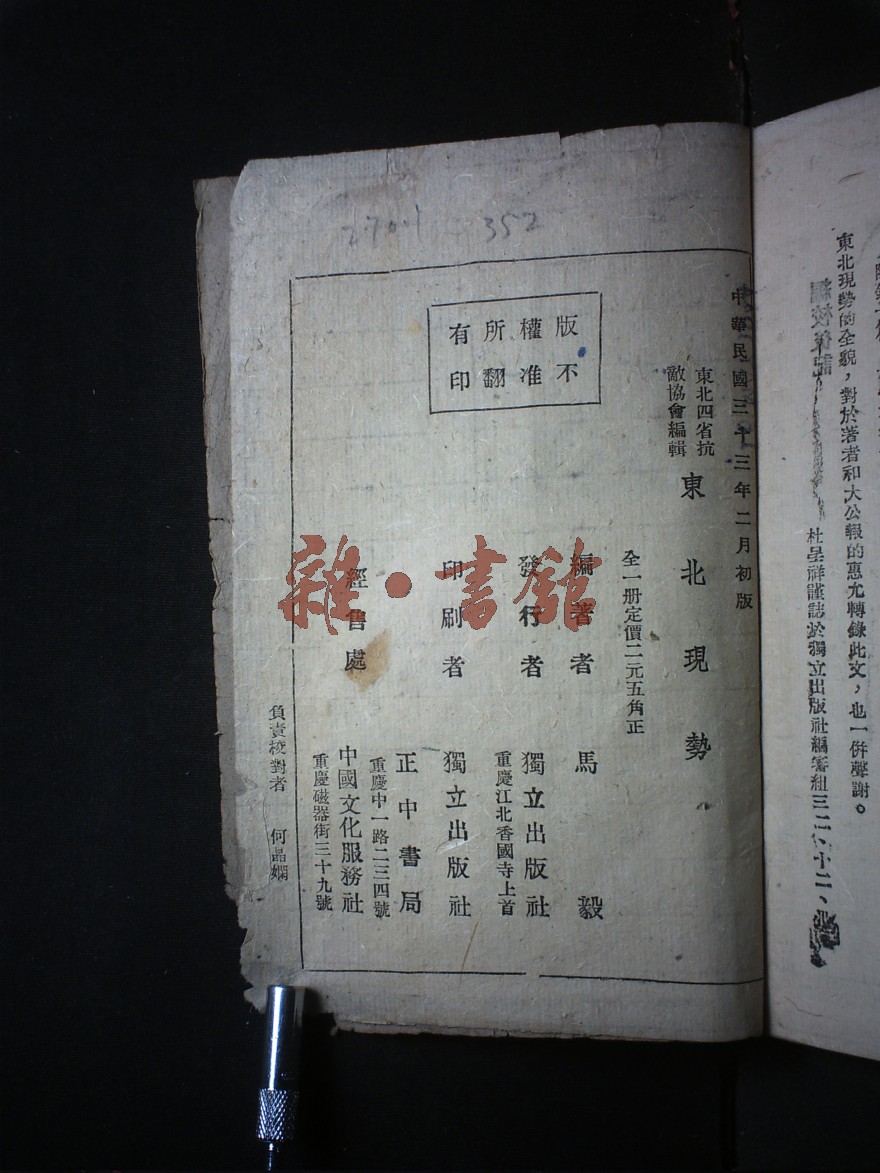 東北現勢的全貌，對於著者和大公報的惠允轉錄此文，也一併聲謝。
杜呈祥謹誌於獨立出版社編審組三二、十二、
中華民國三十三年二月初版
東北四省抗
敵協會編輯
東北現勢
全一册定價二元五角正
編著者 馬毅
發行者 獨立出版社
重慶江北香國寺上首
印刷者 獨立出版社
經售處
正中書局
重慶中一路二三四號
中國文化服務社
重慶磁器街三十九號
版權所有
不准翻印
負責校對者 何晶嫻
2.70.1 352
雜·書館